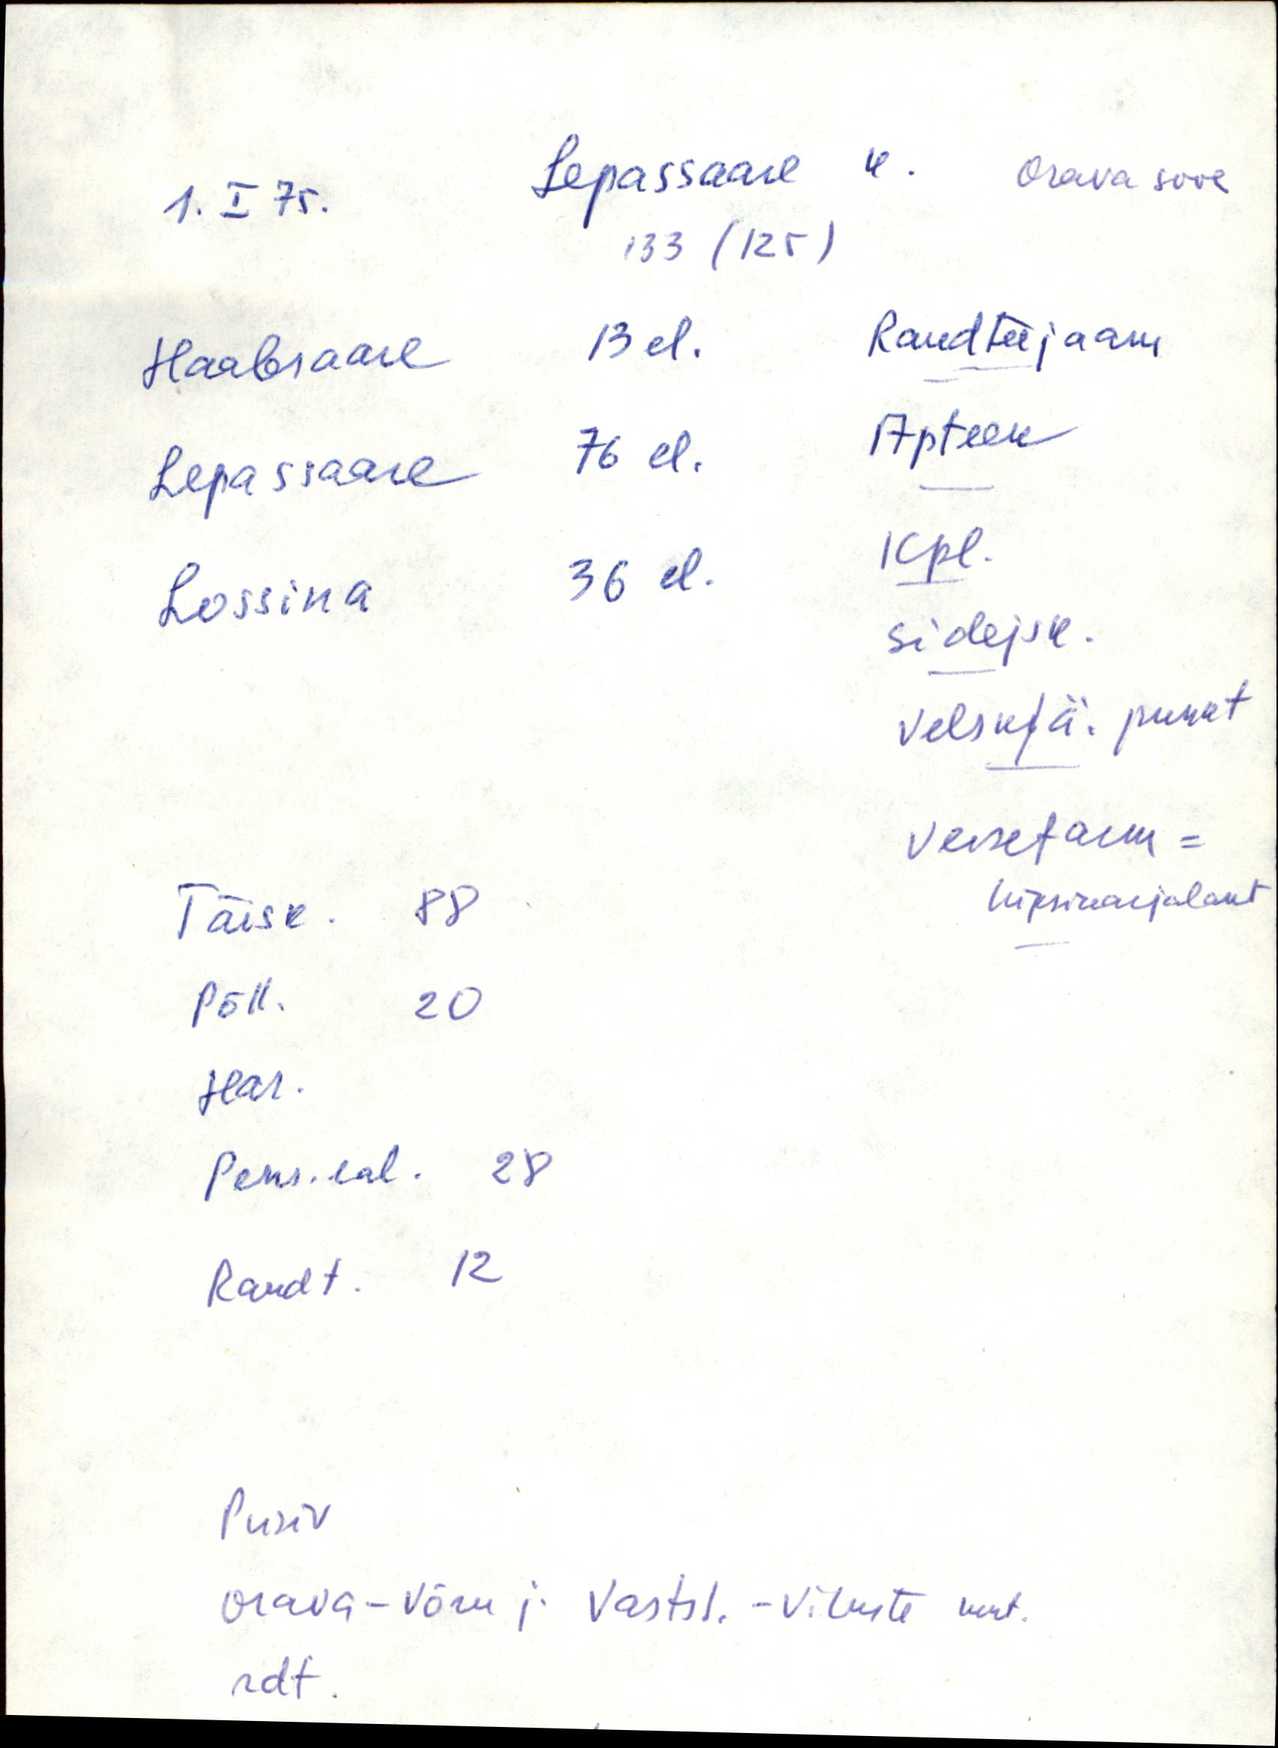 1. I 75. Lepassaare k. Orava sovk
133 (125)
Haabsaare 13 el. Raudteejaam
Lepassaare 76 el. Apteek
Lossina 36 el. Kpl.
sidejsk.
Velsk/ä. punkt
Veisefarm =
lüpsikarjalaut
Täisk. 88
Põll. 20
Har.
Pens. eal. 28
Raudt. 12
Püsiv
Orava - Võru j. Vastsl. - Viluste mnt.
rdt.